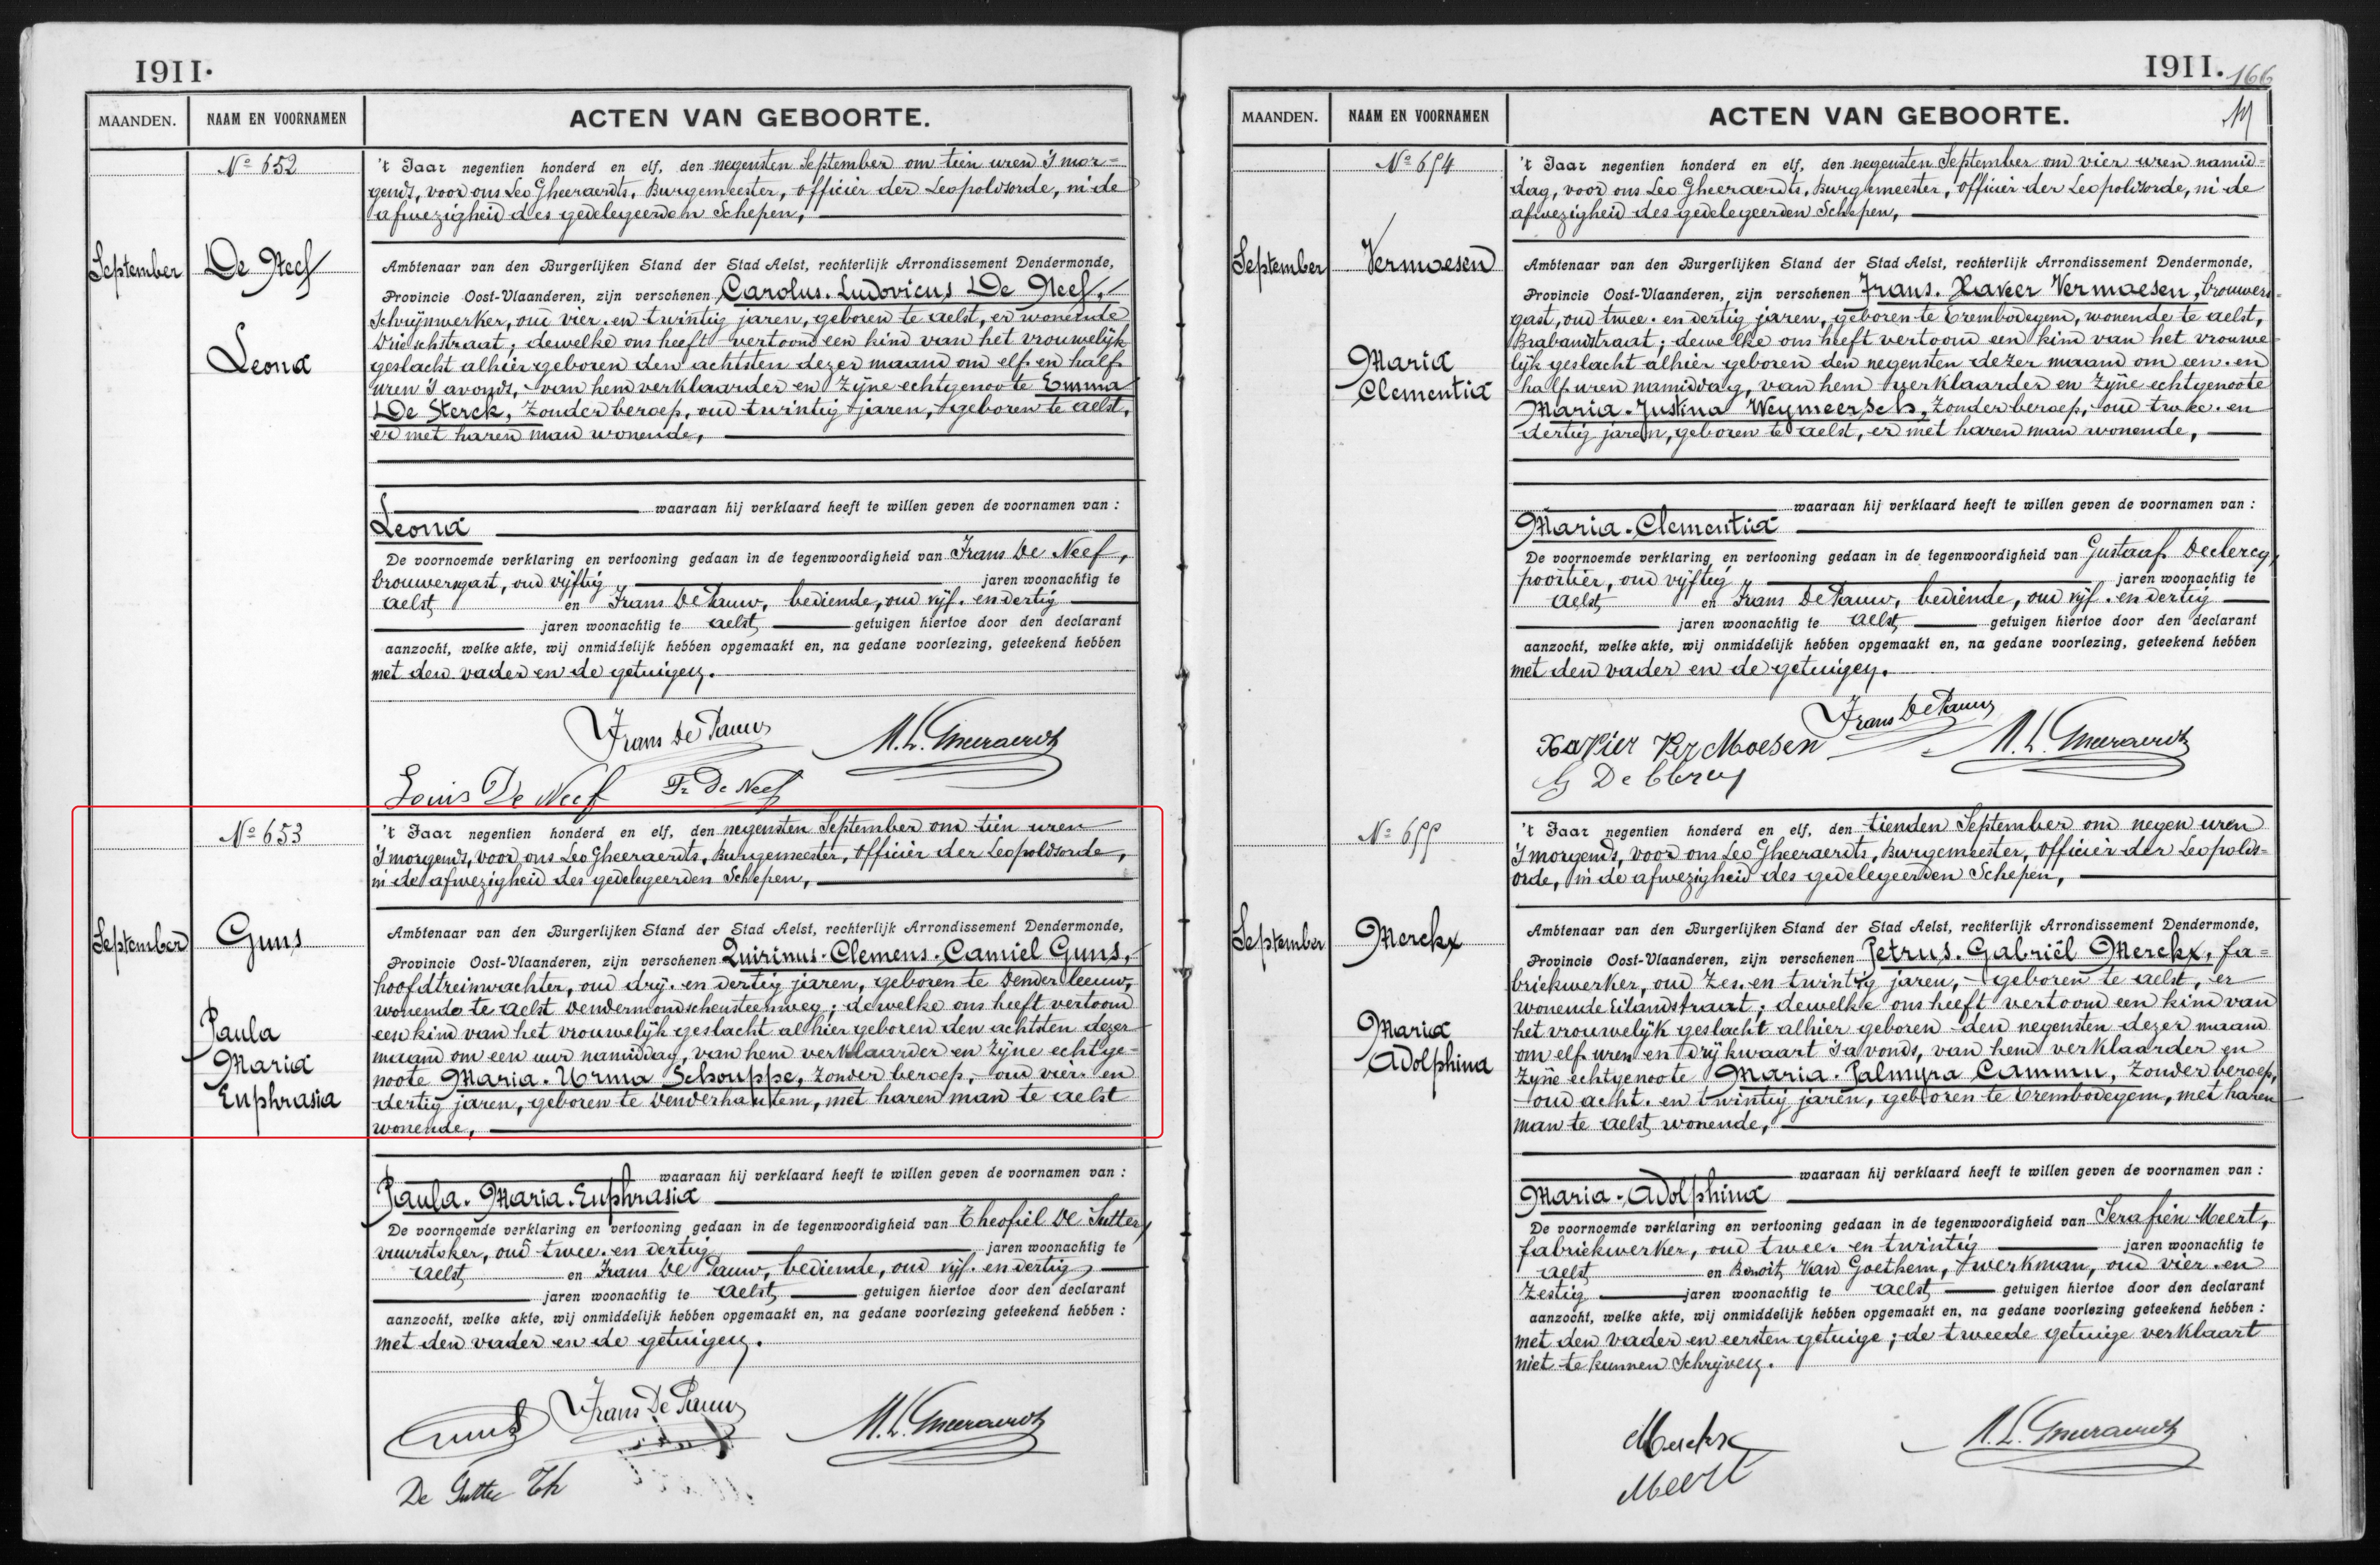 1911.
MAANDEN.
NAAM EN VOORNAMEN
ACTEN VAN GEBOORTE.
No 652
September
De Neef
Leona
't Jaar negentien honderd en elf, den negensten September om tien uren 's mor=
gends, voor ons Leo Gheeraerdts, Burgemeester, officier der Leopoldsorde, in de
afwezigheid des gedelegeerden Schepen,
Ambtenaar van den Burgerlijken Stand der Stad Aelst, rechterlijk Arrondissement Dendermonde,
Provincie Oost-Vlaanderen, zijn verschenen Carolus. Ludovicus De Neef,
schrijnwerker, oud vier. en twintig jaren, geboren te Aelst, er wonende
Drieschstraat; dewelke ons heeft vertoond een kind van het vrouwelijk
geslacht alhier geboren den achtsten dezer maand om elf. en half
uren 's avonds, van hem verklaarder en zijne echtgenoote Emma
De Sterck, zonder beroep, oud twintig jaren, geboren te Aelst,
er met haren man wonende,
waaraan hij verklaard heeft te willen geven de voornamen van :
Leona
De voornoemde verklaring en vertooning gedaan in de tegenwoordigheid van Frans De Neef,
brouwersgast, oud vijftig jaren woonachtig te
Aelst en Frans De Pauw, bediende, oud vijf. en dertig
jaren woonachtig te Aelst getuigen hiertoe door den declarant
aanzocht, welke akte, wij onmiddelijk hebben opgemaakt en, na gedane voorlezing, geteekend hebben
met den vader en de getuigen.
Frans De Pauw
M. L. Gheeraerdts
Louis De Neef
Fr De Neef
No 653
September
Guns
Paula
Maria
Euphrasia
't Jaar negentien honderd en elf, den negensten September om tien uren
's morgends, voor ons Leo Gheeraerdts, Burgemeester, officier der Leopoldsorde,
in de afwezigheid des gedelegeerden Schepen,
Ambtenaar van den Burgerlijken Stand der Stad Aelst, rechterlijk Arrondissement Dendermonde,
Provincie Oost-Vlaanderen, zijn verschenen Quirinus. Clemens. Camiel Guns,
hoofdtreinwachter, oud drij. en dertig jaren, geboren te Denderleeuw,
wonende te Aelst Dendermondschensteenweg; dewelke ons heeft vertoond
een kind van het vrouwelijk geslacht alhier geboren den achtsten dezer
maand om een uur namiddag, van hem verklaarder en zijne echtge-
noote Maria. Urma Schouppe, zonder beroep, oud vier. en
dertig jaren, geboren te Denderhautem, met haren man te Aelst
wonende,
waaraan hij verklaard heeft te willen geven de voornamen van :
Paula. Maria. Euphrasia
De voornoemde verklaring en vertooning gedaan in de tegenwoordigheid van Theofiel De Sutter,
vuurstoker, oud twee. en dertig jaren woonachtig te
Aelst en Frans De Pauw, bediende, oud vijf. en dertig
jaren woonachtig te Aelst, getuigen hiertoe door den declarant
aanzocht, welke akte, wij onmiddelijk hebben opgemaakt en, na gedane voorlezing geteekend hebben :
met den vader en de getuigen.
Guns
Frans De Pauw
M. L. Gheeraerdts
De Sutter Th
1911. 166
MAANDEN.
NAAM EN VOORNAMEN
ACTEN VAN GEBOORTE.
No 654
September
Vermoesen
Maria
Clementia
't Jaar negentien honderd en elf, den negensten September om vier uren namid=
dag, voor ons Leo Gheeraerdts, Burgemeester, officier der Leopoldsorde, in de
afwezigheid des gedelegeerden Schepen,
Ambtenaar van den Burgerlijken Stand der Stad Aelst, rechterlijk Arrondissement Dendermonde,
Provincie Oost-Vlaanderen, zijn verschenen Frans. Xaveer Vermoesen, brouwers=
gast, oud twee. en dertig jaren, geboren te Erembodegem, wonende te Aelst,
Brabandstraat; dewelke ons heeft vertoond een kind van het vrouwe=
lijk geslacht alhier geboren den negensten dezer maand om een. en
half uren namiddag, van hem verklaarder en zijne echtgenoote
Maria. Justina Weymeersch, zonder beroep, oud twee. en
dertig jaren, geboren te Aelst, er met haren man wonende,
waaraan hij verklaard heeft te willen geven de voornamen van :
Maria. Clementia
De voornoemde verklaring en vertooning gedaan in de tegenwoordigheid van Gustaaf Declercq,
poortier, oud vijftig jaren woonachtig te
Aelst en Frans De Pauw, bediende, oud vijf. en dertig
jaren woonachtig te Aelst, getuigen hiertoe door den declarant
aanzocht, welke akte, wij onmiddelijk hebben opgemaakt en, na gedane voorlezing, geteekend hebben
met den vader en de getuigen.
Frans De Pauw
Xavier Ver Moesen
M. L. Gheeraerdts
G De Clercq
No 655
September
Merckx
Maria
Adolphina
't Jaar negentien honderd en elf, den tienden September om negen uren
's morgends, voor ons Leo Gheeraerdts, Burgemeester, officier der Leopolds=
orde, in de afwezigheid des gedelegeerden Schepen,
Ambtenaar van den Burgerlijken Stand der Stad Aelst, rechterlijk Arrondissement Dendermonde,
Provincie Oost-Vlaanderen, zijn verschenen Petrus. Gabriël Merckx, fa=
briekwerker, oud zes. en twintig jaren, geboren te Aelst, er
wonende Eilandstraat; dewelke ons heeft vertoond een kind van
het vrouwelijk geslacht alhier geboren den negensten dezer maand
om elf uren en drij kwaart 's avonds, van hem verklaarder en
zijne echtgenoote Maria. Palmyra Cammu, zonder beroep,
oud acht. en twintig jaren, geboren te Erembodegem, met haren
man te Aelst wonende,
waaraan hij verklaard heeft te willen geven de voornamen van :
Maria. Adolphina
De voornoemde verklaring en vertooning gedaan in de tegenwoordigheid van Serafien Meert,
fabriekwerker, oud twee. en twintig jaren woonachtig te
Aelst en Benoit Van Goethem, werkman, oud vier. en
zestig jaren woonachtig te Aelst getuigen hiertoe door den declarant
aanzocht, welke akte, wij onmiddelijk hebben opgemaakt en, na gedane voorlezing geteekend hebben :
met den vader en eersten getuige; de tweede getuige verklaart
niet te kunnen schrijven.
Merckx
M. L. Gheeraerdts
Meert